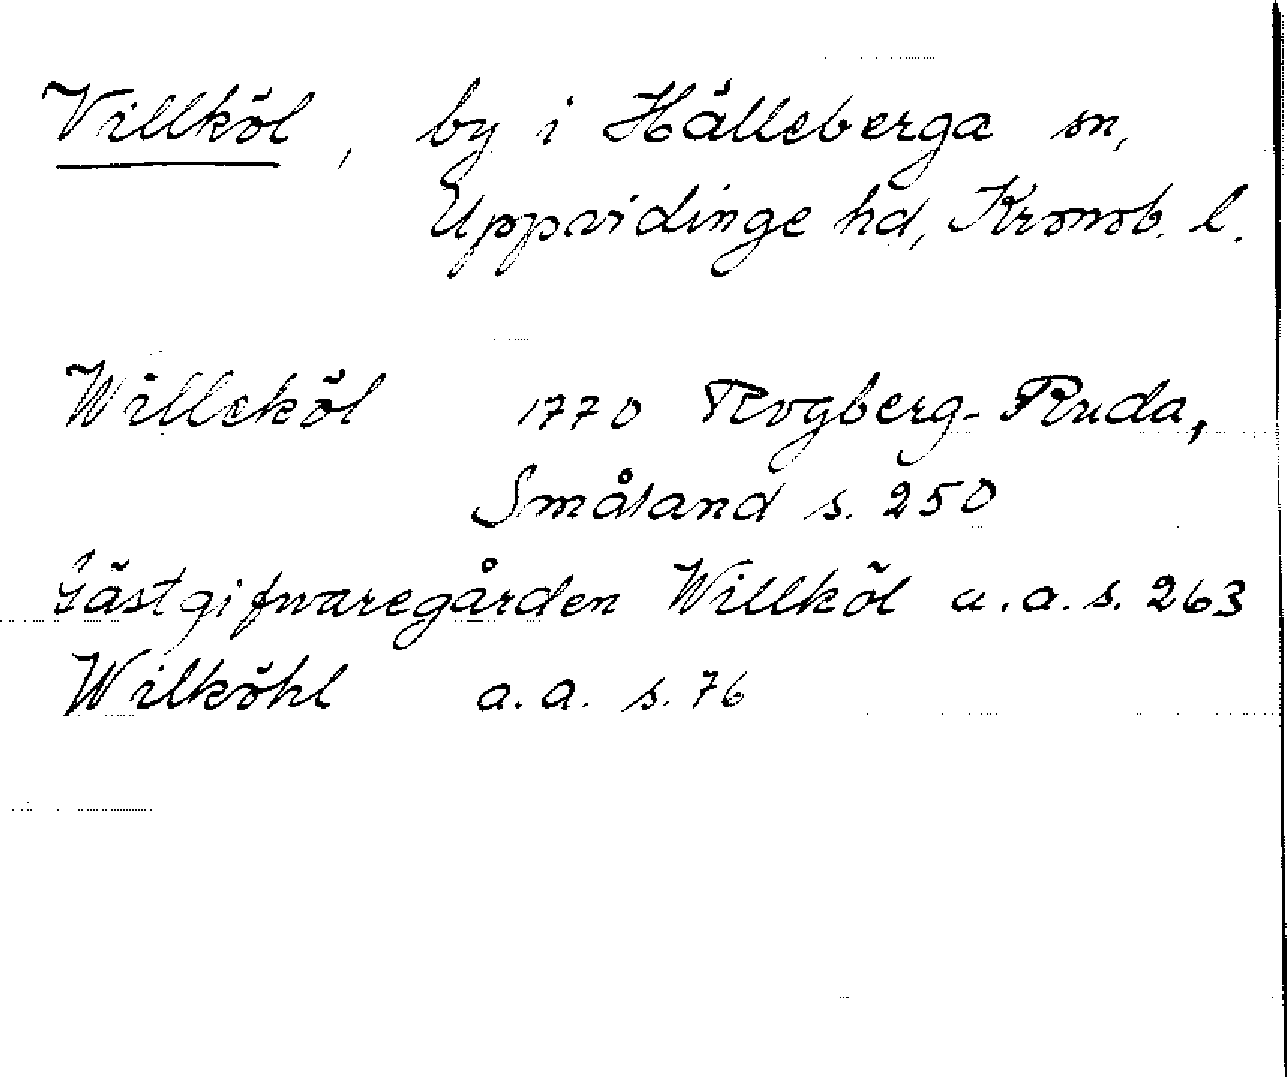 Villköl, by i Hälleberga sn,
Uppvidinge hd, Kronob. l.
Willeköl 1770 Rogberg-Ruda,
Småland s. 250
Gästgifwaregården Willköl a.a. s. 263
Wilköhl a.a. s. 76